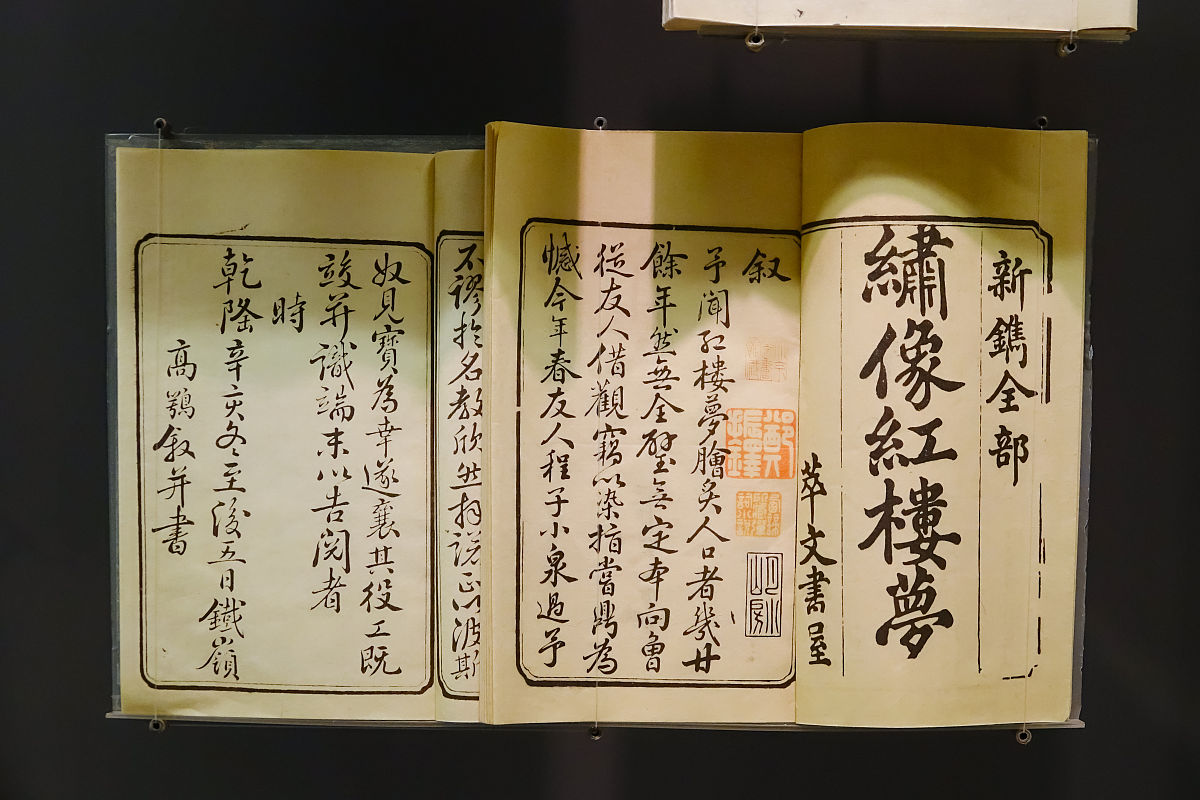 新鐫全部
繡像紅樓夢
萃文書屋
叙
予聞紅樓夢膾炙人口者幾廿
餘年然無全璧無定本向曾
從友人借觀竊以染指嘗鼎為
憾今年春友人程子小泉過予
不謬於名教欣然拜諾正以波斯
奴見寶為幸遂襄其役工既
竣并識端末以告閱者
時
乾隆辛亥冬至後五日鐵嶺
高鶚叙并書
鄭振鐸